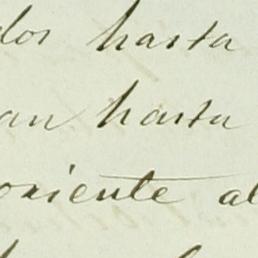 dos hasta
an hasta
oriente al